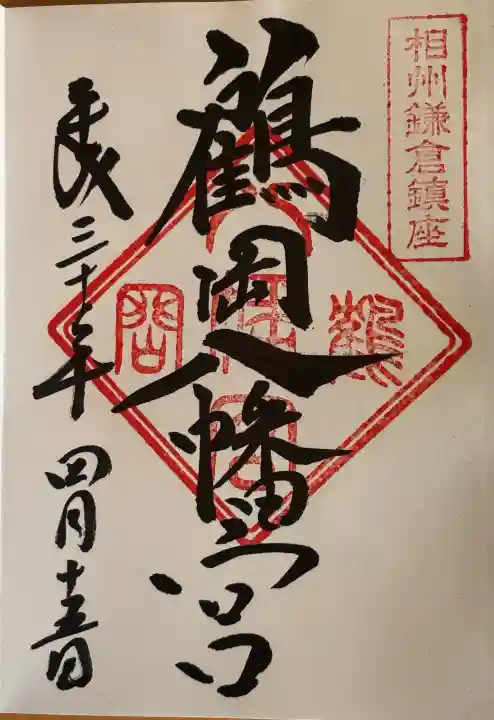 相州鎌倉鎮座
鶴岡八幡宮
平成三十一年四月十五日